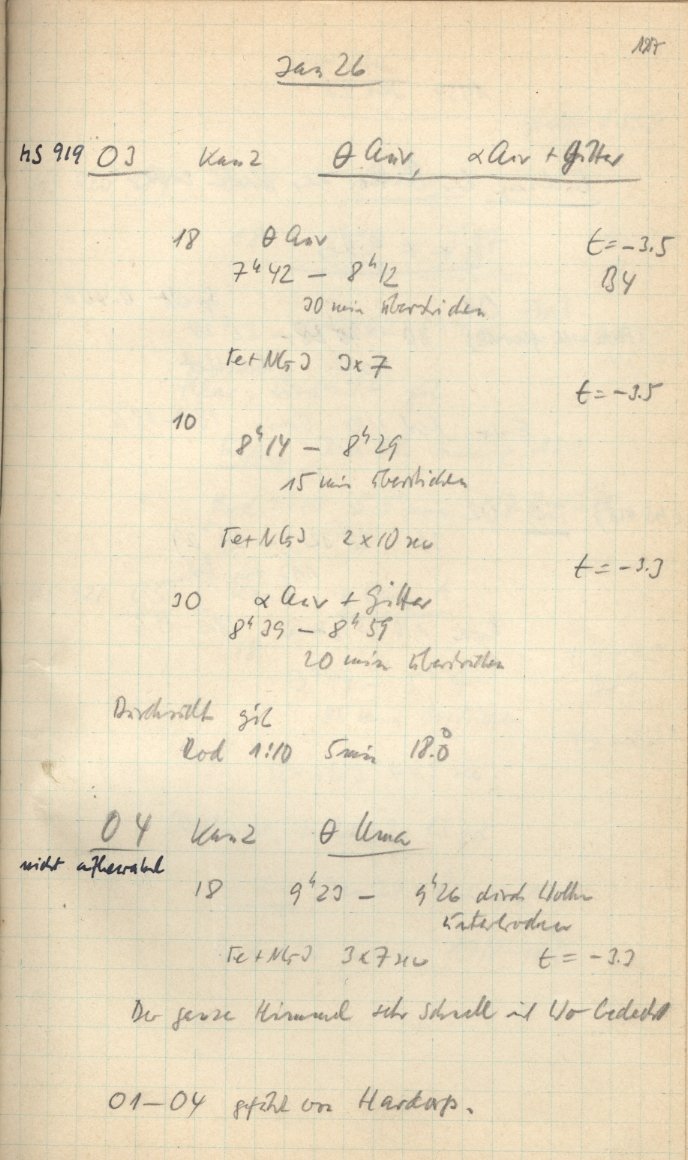 127
Jan 26
HS 919 03 Kam 2 θ Aur, α Aur + Gitter
18 θ Aur t = -3.5
7h42 – 8h12 B4
30 min überstrichen
Fe+NG3 3x7
t = -3.5
10
8h14 – 8h29
15 min überstrichen
Fe+NG3 2x10 sec
t = -3.3
30 α Aur + Gitter
8h39 – 8h59
20 min überstrichen
Durchsicht gut
Rod 1:10 5 min 18.0°
04 Kam 2 θ Uma
nicht aufbewahrt
18 9h23 – 9h26 durch Wolken
unterbrochen
Fe+NG3 3x7 sec t = -3.3
Der ganze Himmel sehr schnell mit Wo bedeckt
01–04 geführt von Hardorp.